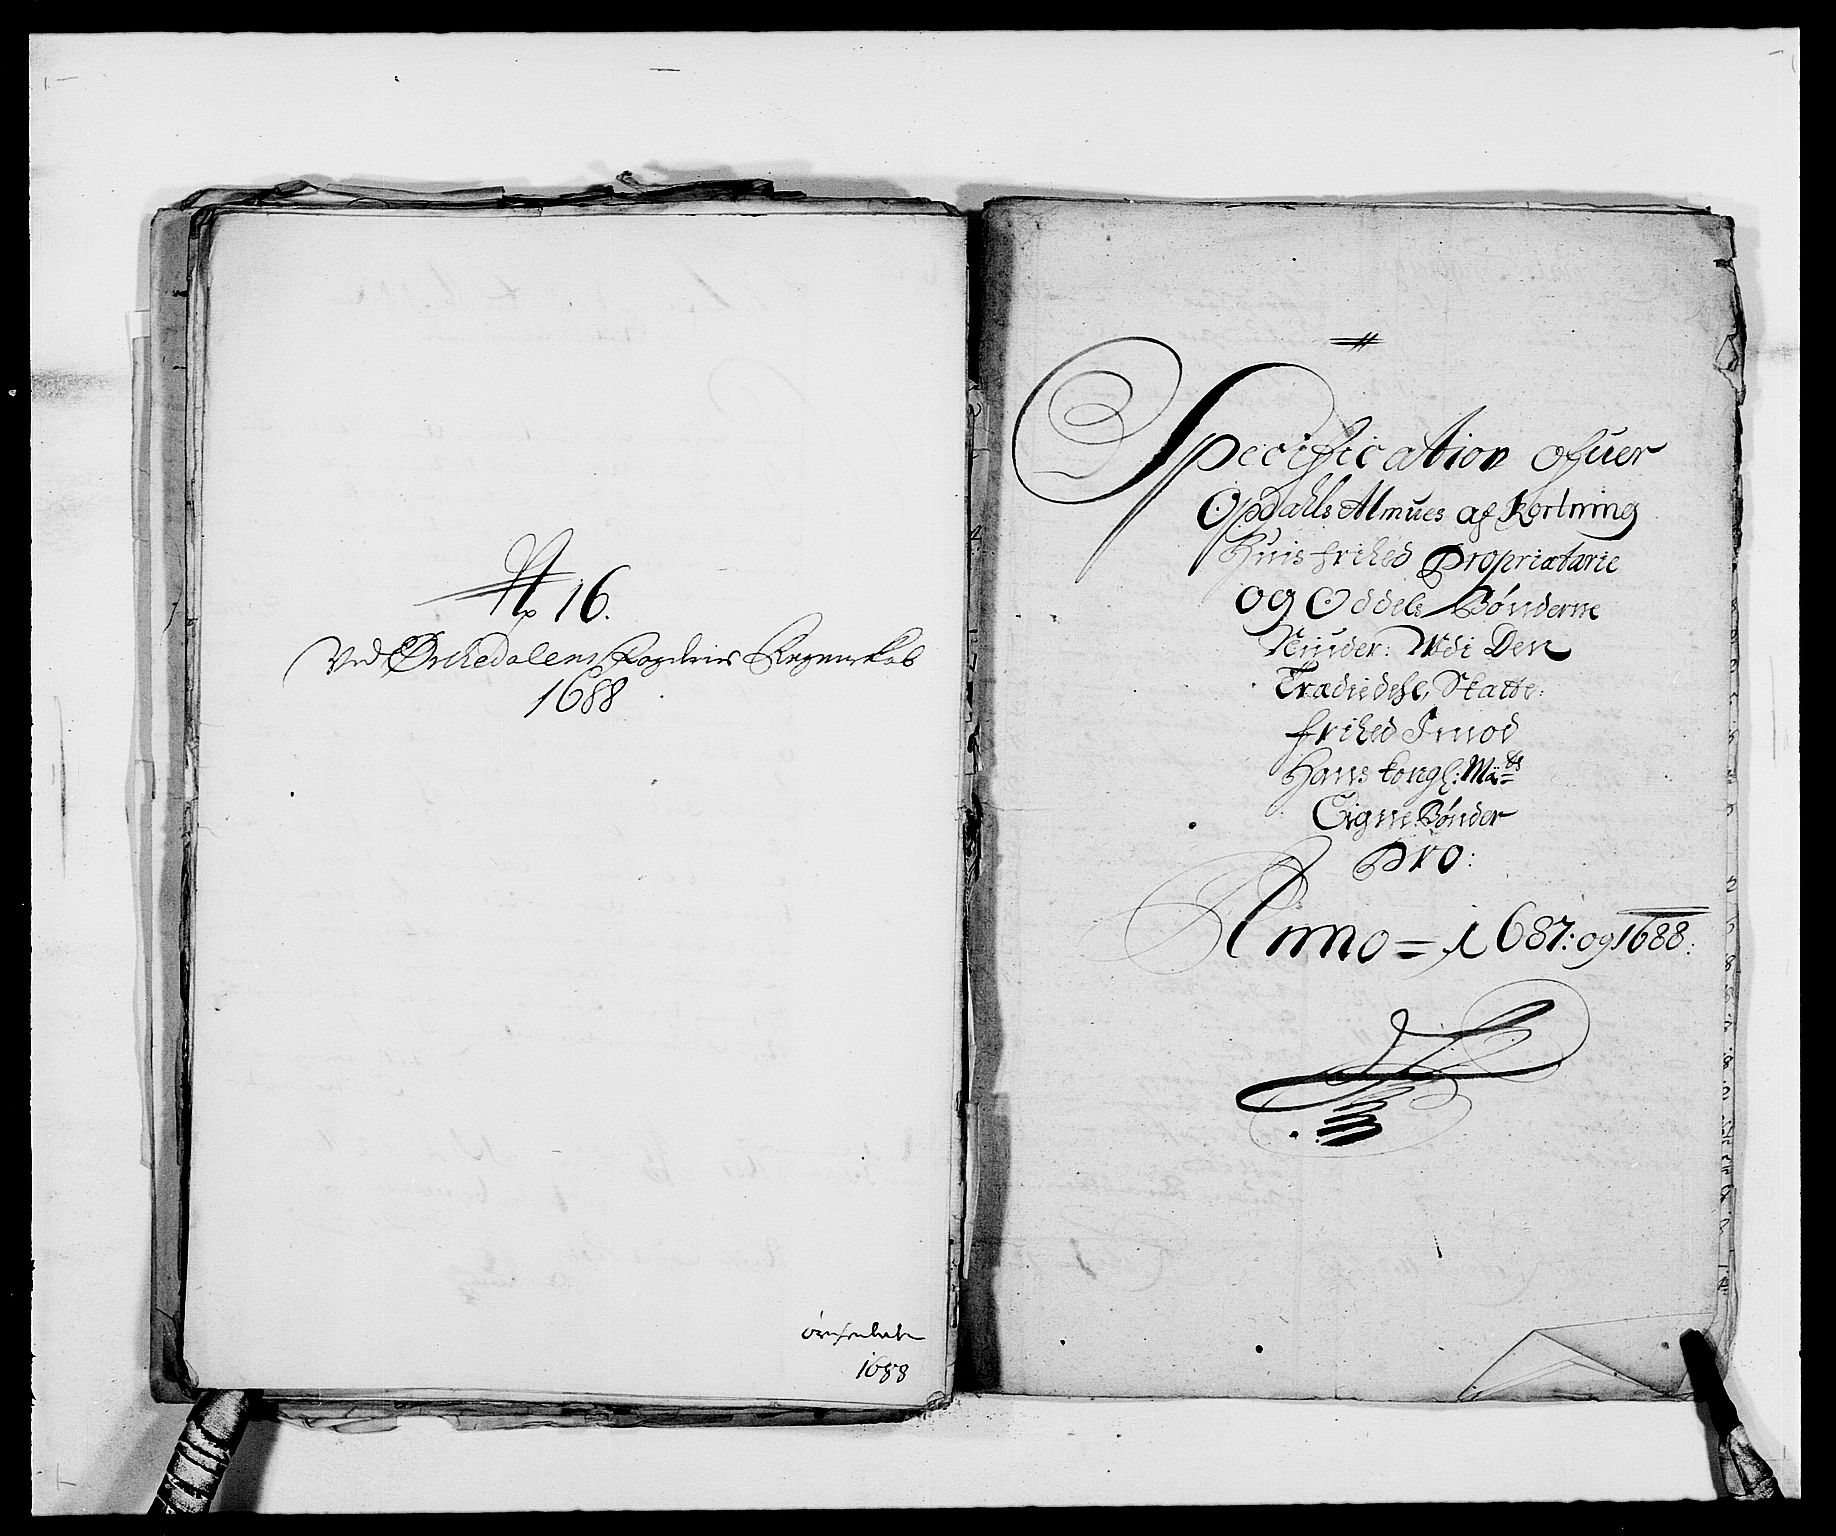 No 16.
Ved Orchedalens Fogderies Regenskab
1688
1688
Specification ofuer
Opdahls Almues afkortning
Huis frihed Propriætarie
og Oddels Bønderne
Niuder: Udi Den
Trædiedehl, Skatte:
frihed Imod
Hans kongl: Maÿts
Eigne Bønder
Pro:
Anno = 1687: og 1688: